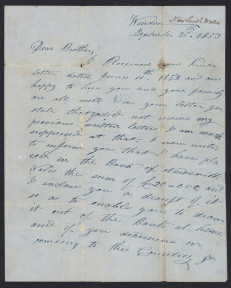 Windsor New South Wales
September 2nd 1853
Dear Brother,
I Received your kind
letter dated June 10th 1853 and was
happy to hear you and your family
are all well. In your letter you
state that you did not receive my
previous written letter I am much
surprised at that. I now write
to inform you that I have pla
ced in the Bank of
the sum of £20-0-0 and
I enclose you a draft of it
so as to enable you to draw
it out of the Bank at home
and if you determine on
comeing to this Country you